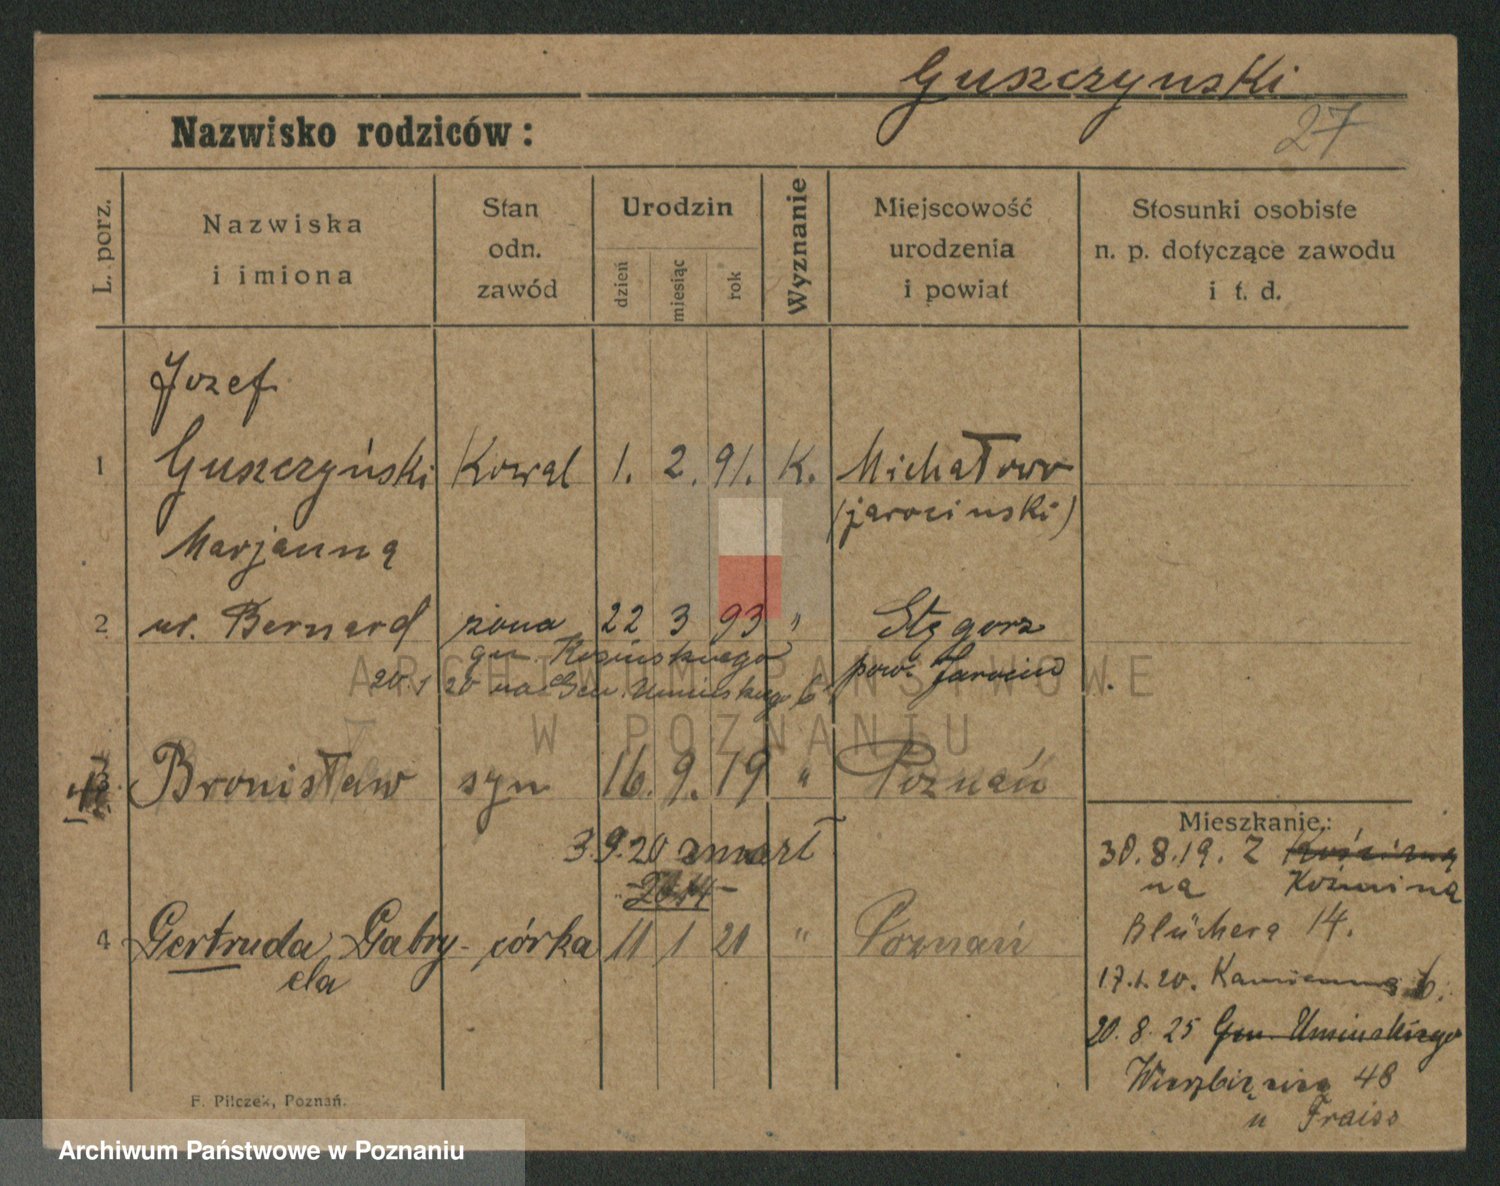 Guszczynski
27
Nazwisko rodziców:
L. porz.
Nazwiska
i imiona
Stan
odn.
zawód
Urodzin
dzień
miesiąc
rok
Wyznanie
Miejscowość
urodzenia
i powiat
Stosunki osobiste
n. p. dotyczące zawodu
i t. d.
Jozef
1 Guszczyński Kowal 1. 2. 91. K. Michałowo
(jarocinski)
Marjanną
2 ur. Bernard żona 22 3 93 " Stęgorz
gen. Kosinskiego
pow. Jarocin
20.1 20 na Gen. Uminskiego 6
3 Bronisław syn 16. 9. 19 " Poznań
3.9.20 zmarł
4 Gertruda Gabry- córka 11 1 20 " Poznań
ela
Mieszkanie:
30.8.19. Z
na Koźmina
Blüchera 14.
17.1.20. Kamienna 6.
20.8.25 Gen. Uminskiego
Wierzbięcice 48
u Fraiss
F. Pilczek, Poznań.
ARCHIWUM PAŃSTWOWE
W POZNANIU
Archiwum Państwowe w Poznaniu